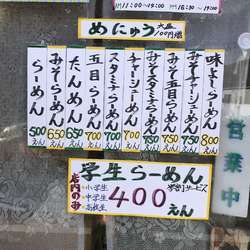 AM 11:00〜14:00
PM 16:00〜19:00
めにゅう 大盛100円増
味よしらーめん 800えん
みそチャーシューめん 750えん
みそ五目らーめん 750えん
みそスタミナらーめん 750えん
チャーシューめん 700えん
スタミナらーめん 700えん
五目らーめん 700えん
たんめん 650えん
みそらーめん 650えん
らーめん 500えん
営業中
学生らーめん
店内のみ
・小学生
・中学生
・高校生
学割サービス
400えん